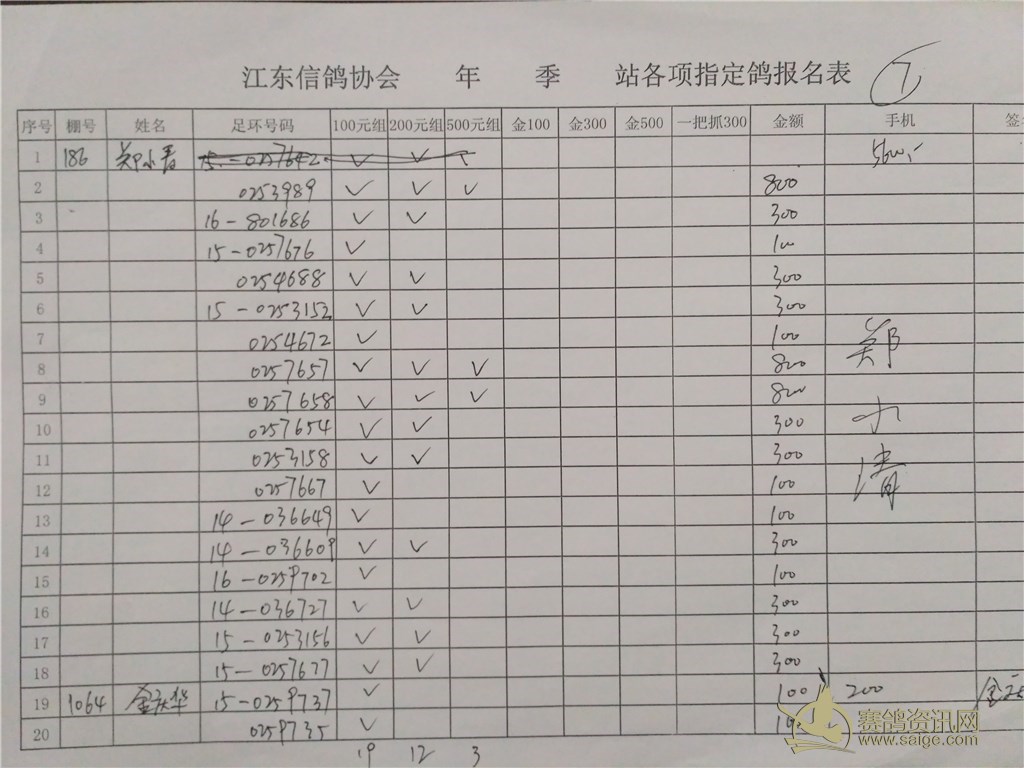 江东信鸽协会 年 季 站各项指定鸽报名表 7
序号 棚号 姓名 足环号码 100元组 200元组 500元组 金100 金300 金500 一把抓300 金额 手机
1 186 郑小清 15-0257642 ✓ ✓ ✓ 5600,-
2 0253989 ✓ ✓ ✓ 800
3 16-801686 ✓ ✓ 300
4 15-0257676 ✓ 100
5 0254688 ✓ ✓ 300
6 15-0253152 ✓ ✓ 300
7 0254672 ✓ 100
8 0257657 ✓ ✓ ✓ 800
9 0257658 ✓ ✓ ✓ 800
10 0257654 ✓ ✓ 300
11 0253158 ✓ ✓ 300
12 0257667 ✓ 100
13 14-036649 ✓ 100
14 14-036609 ✓ ✓ 300
15 16-0259702 ✓ 100
16 14-036727 ✓ ✓ 300
17 15-0253156 ✓ ✓ 300
18 15-0257677 ✓ ✓ 300
19 1064 15-0259737 ✓ 100 200
20 0259735 ✓
19 12 3
郑小清
赛鸽资讯网
www.saige.com